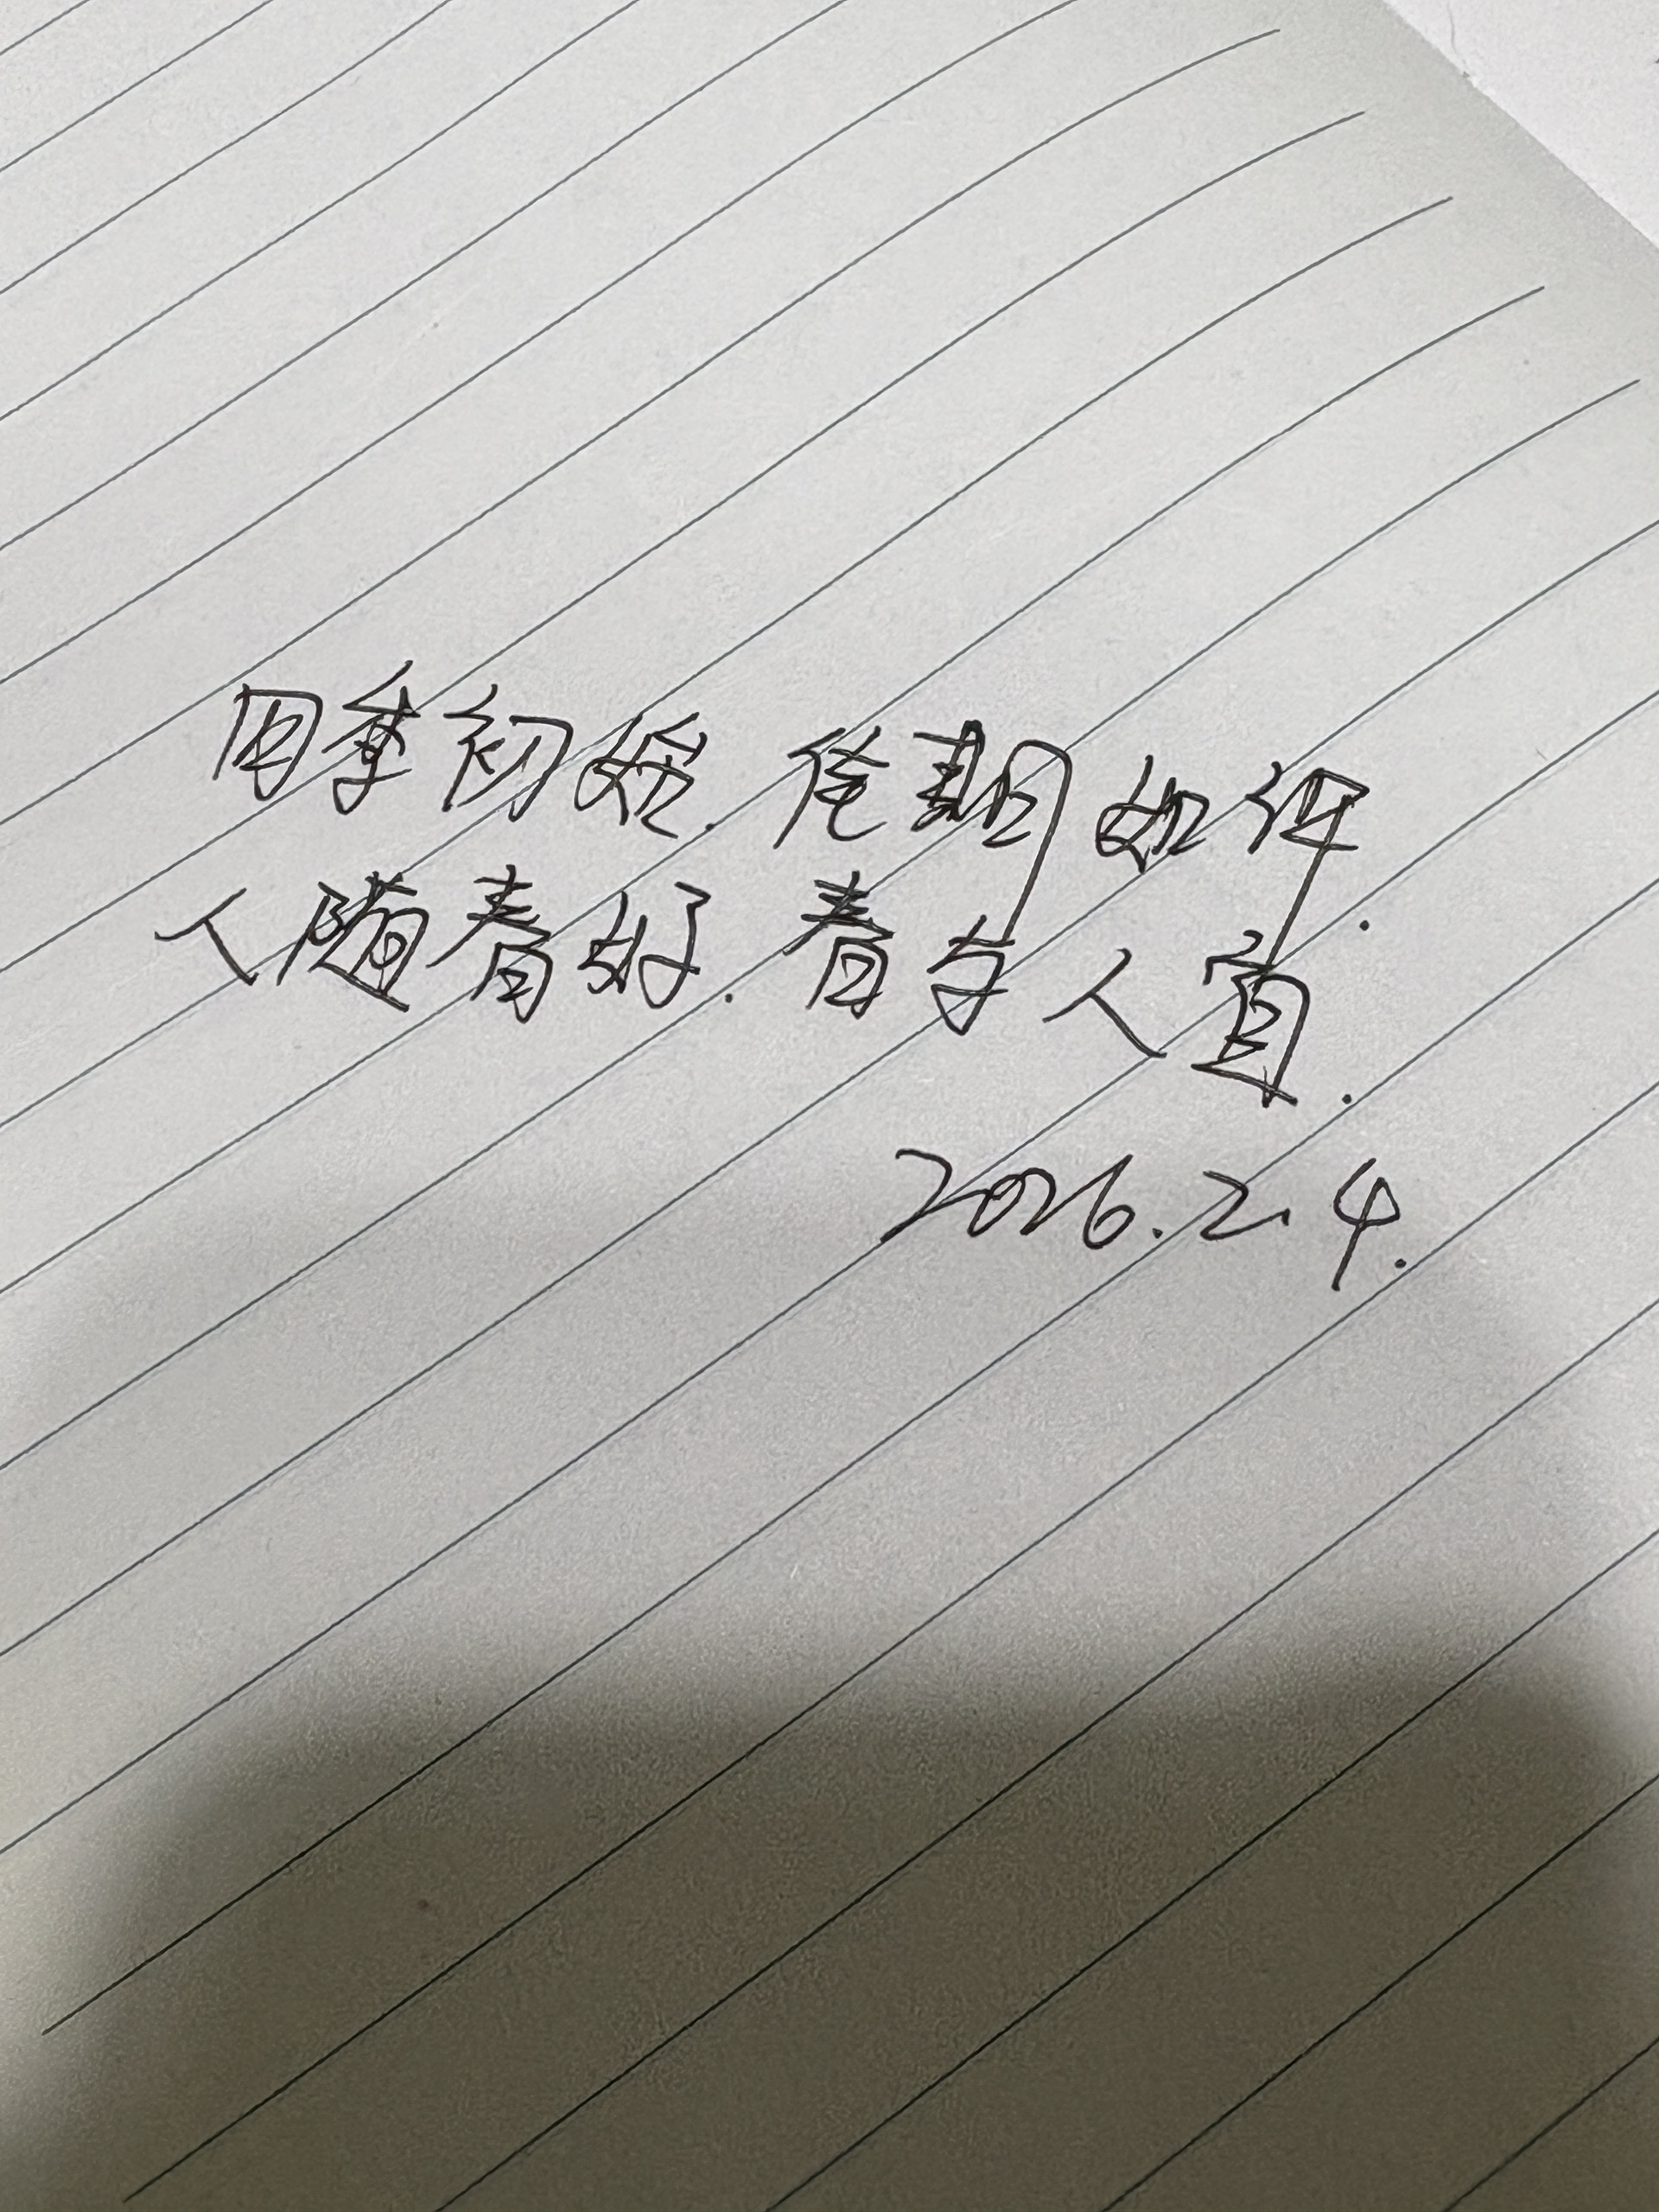 四季初始.佳期如许.
人随春好.春与人宜.
2026.2.4.